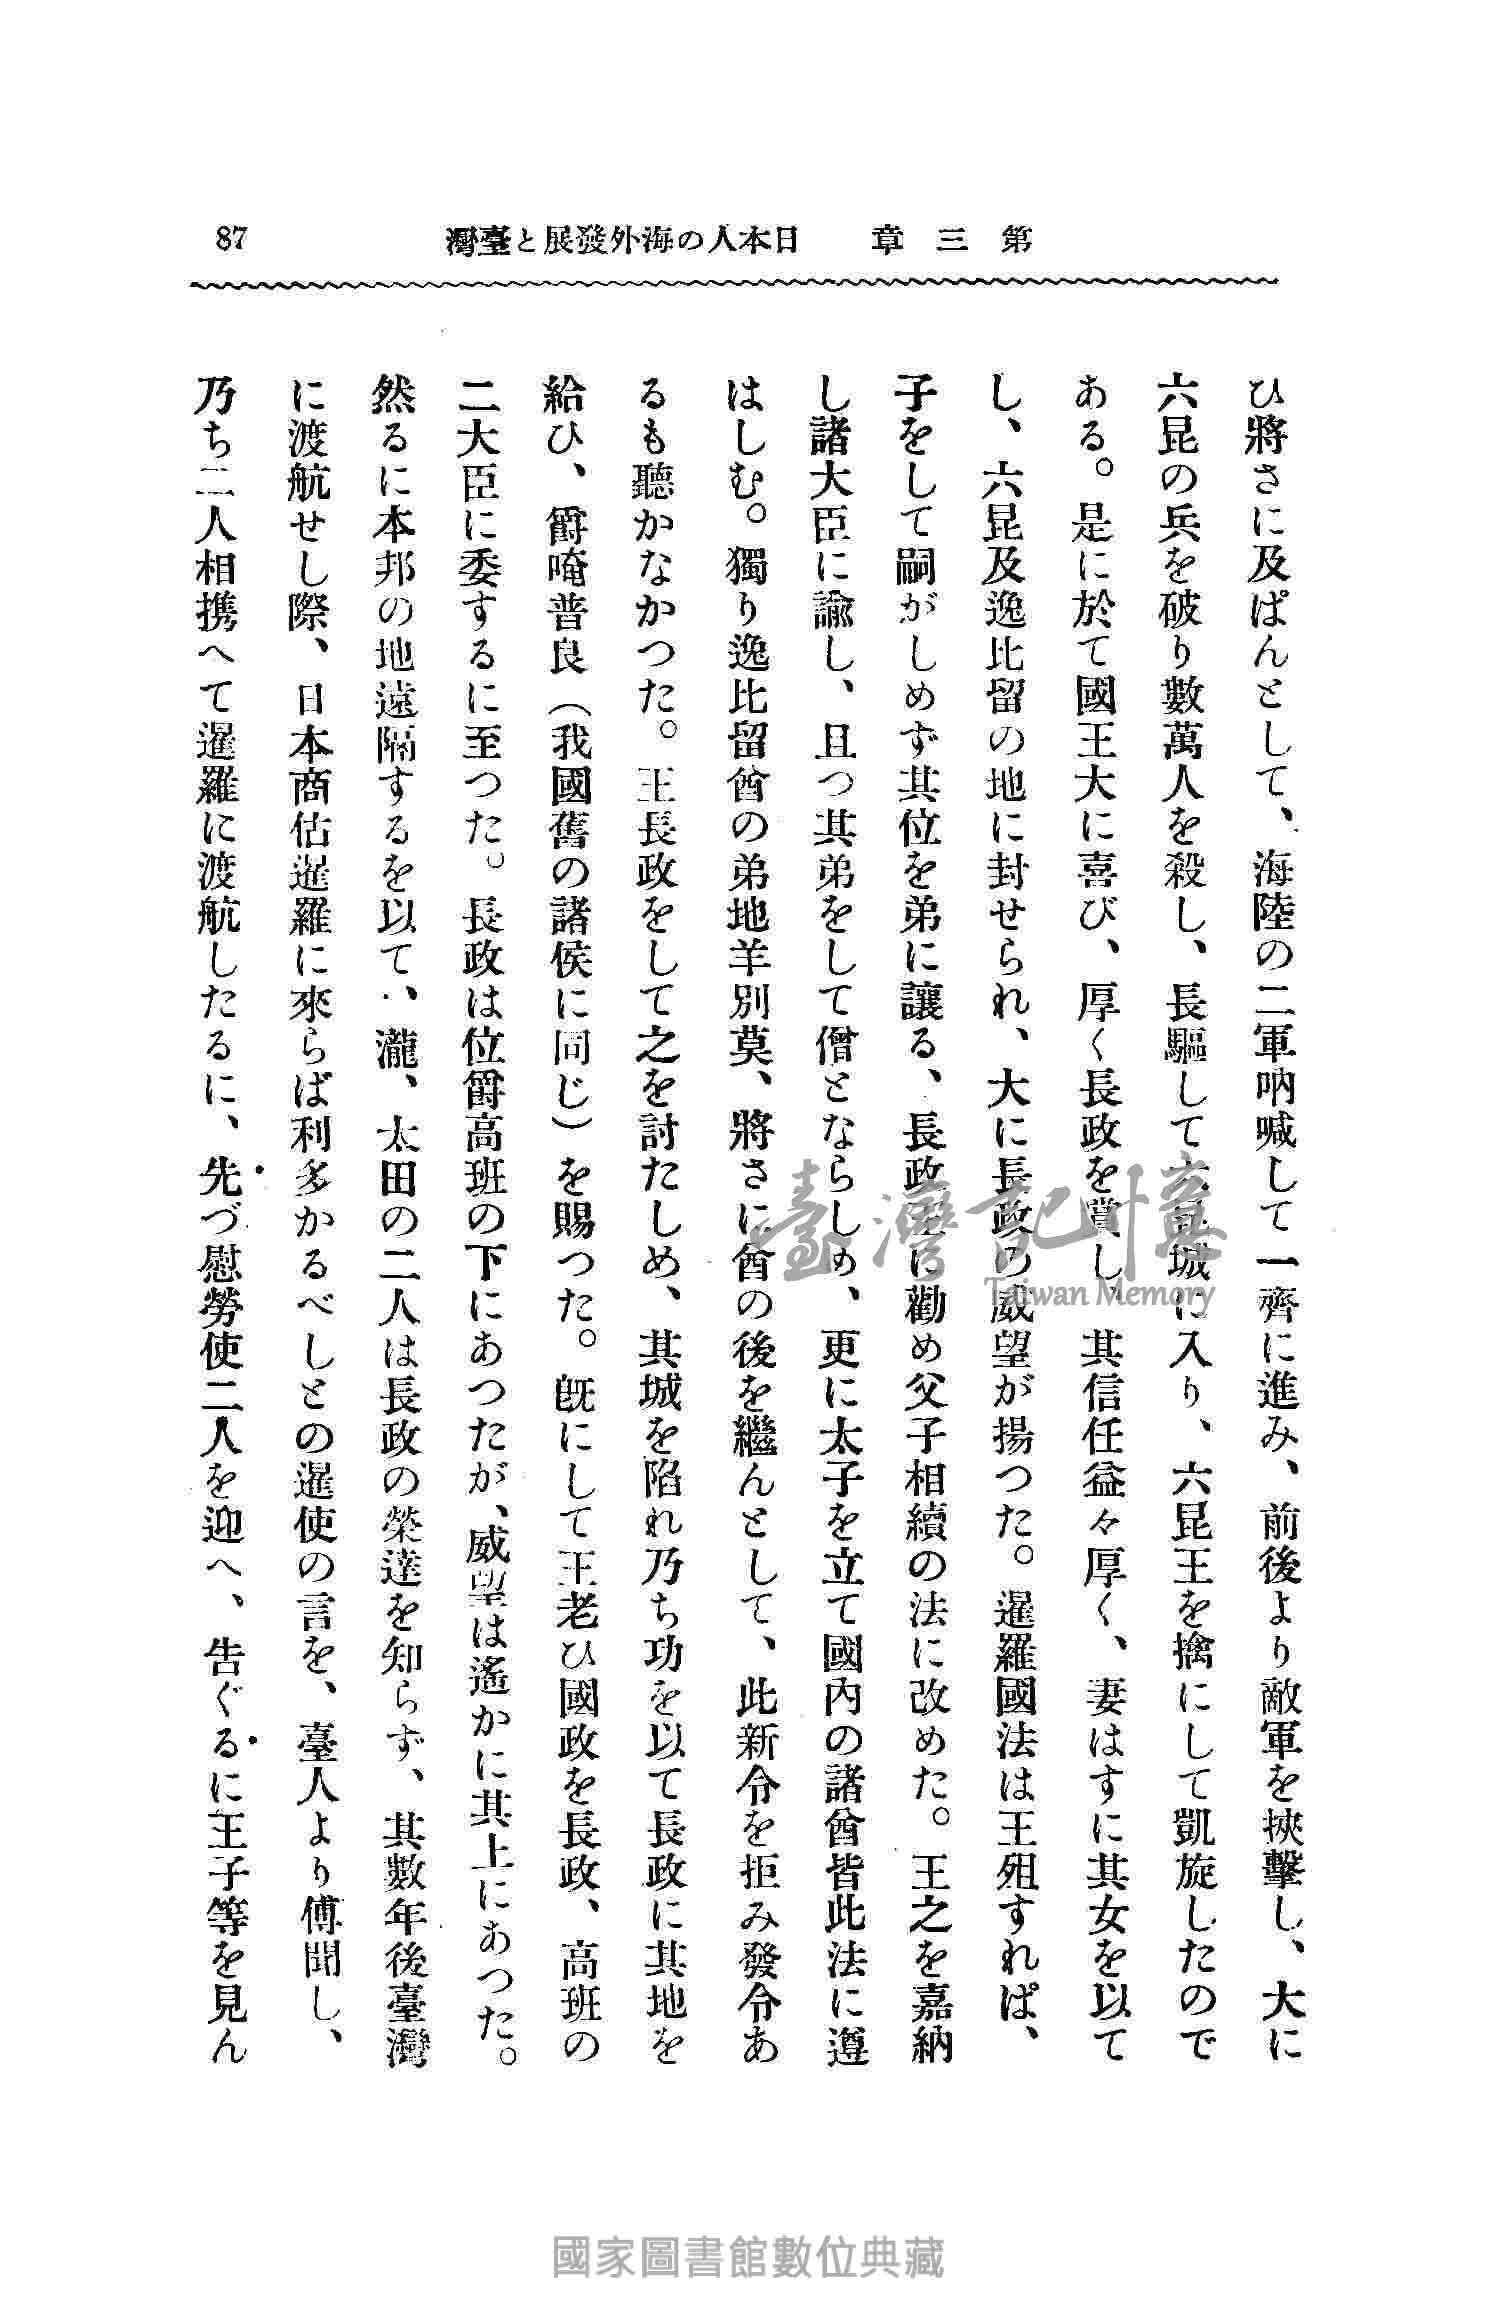 第三章　日本人の海外發展と臺灣
87
ひ將さに及ばんとして、海陸の二軍吶喊して一齊に進み、前後より敵軍を挾擊し、大に
六昆の兵を破り數萬人を殺し、長驅して六昆城に入り、六昆王を擒にして凱旋したので
ある。是に於て國王大に喜び、厚く長政を賞し、其信任益々厚く、妻はすに其女を以て
し、六昆及逸比留の地に封せられ、大に長政の威望が揚つた。暹羅國法は王殂すれば、
子をして嗣がしめず其位を弟に讓る、長政王に勸め父子相續の法に改めた。王之を嘉納
し諸大臣に諭し、且つ其弟をして僧とならしめ、更に太子を立て國內の諸酋皆此法に遵
はしむ。獨り逸比留酋の弟地羊別莫、將さに酋の後を繼んとして、此新令を拒み發令あ
るも聽かなかつた。王長政をして之を討たしめ、其城を陷れ乃ち功を以て長政に其地を
給ひ、爵唵普良（我國舊の諸侯に同じ）を賜つた。旣にして王老ひ國政を長政、高班の
二大臣に委するに至つた。長政は位爵高班の下にあつたが、威望は遙かに其上にあつた。
然るに本邦の地遠隔するを以て、瀧、太田の二人は長政の榮達を知らず、其數年後臺灣
に渡航せし際、日本商估暹羅に來らば利多かるべしとの暹使の言を、臺人より傳聞し、
乃ち二人相携へて暹羅に渡航したるに、先づ慰勞使二人を迎へ、告ぐるに王子等を見ん
臺灣記憶
Taiwan Memory
國家圖書館數位典藏